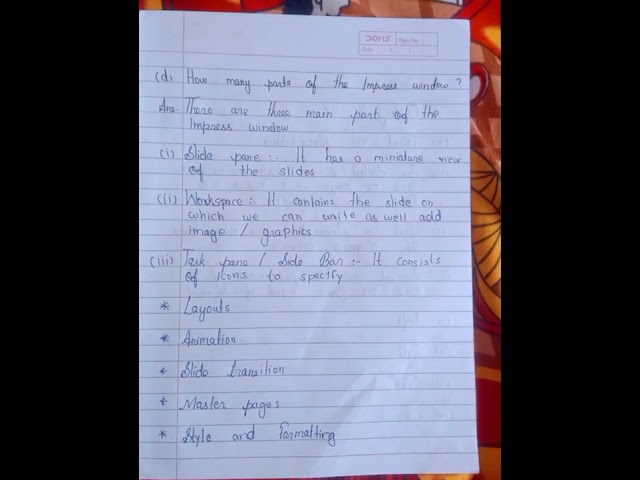 DOMS Page No.
Date / /
(d) How many parts of the Impress window ?
Ans. There are three main part of the
Impress window
(i) Slide pane :- It has a miniature view
of the slides
(ii) Workspace :- It contains the slide on
which we can write as well add
image / graphics
(iii) Task pane / Side Bar :- It consists
of icons to specify
* Layouts
* Animation
* Slide transition
* Master pages
* Style and Formatting